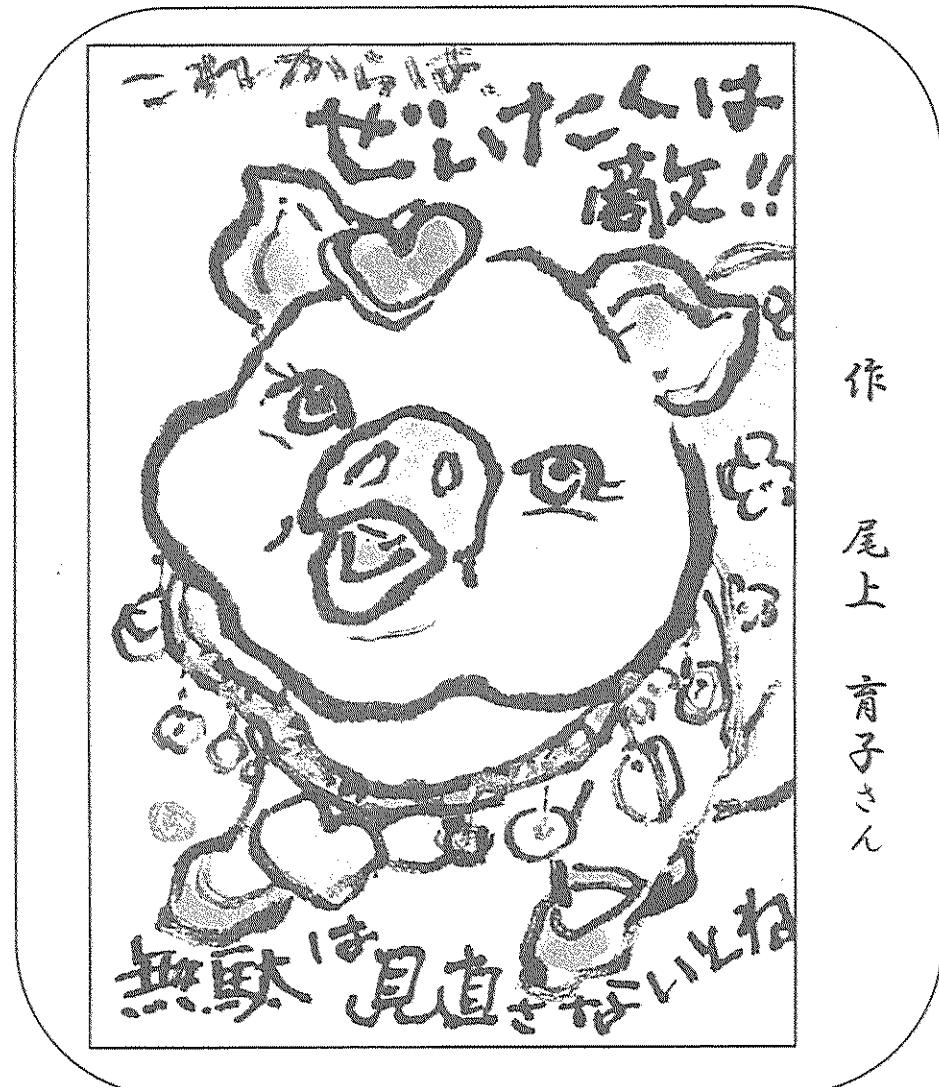 これからは
ぜいたくは
敵!!
無駄は見直さないとね
作 尾上 育子さん